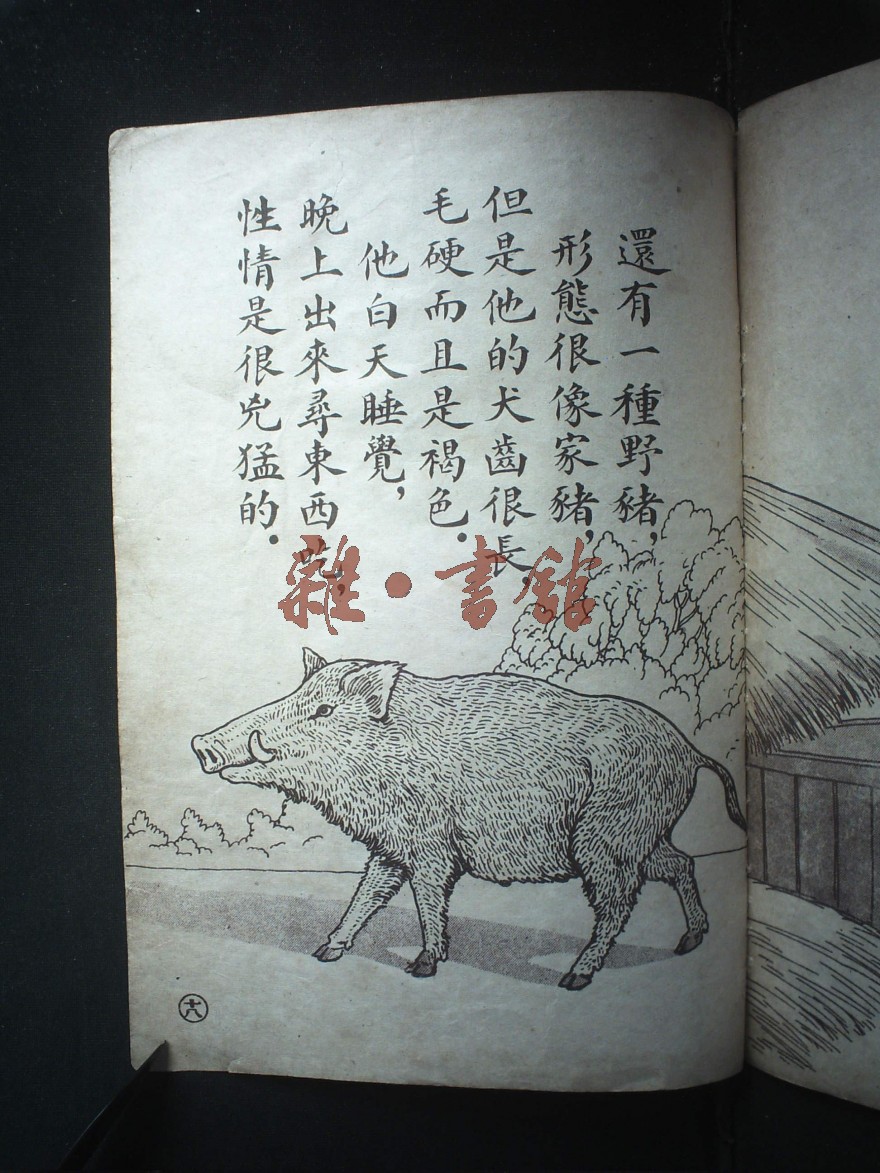 還有一種野豬，
形態很像家豬，
但是他的犬齒很長，
毛硬而且是褐色．
他白天睡覺，
晚上出來尋東西吃，
性情是很兇猛的．
雜·書館
十八